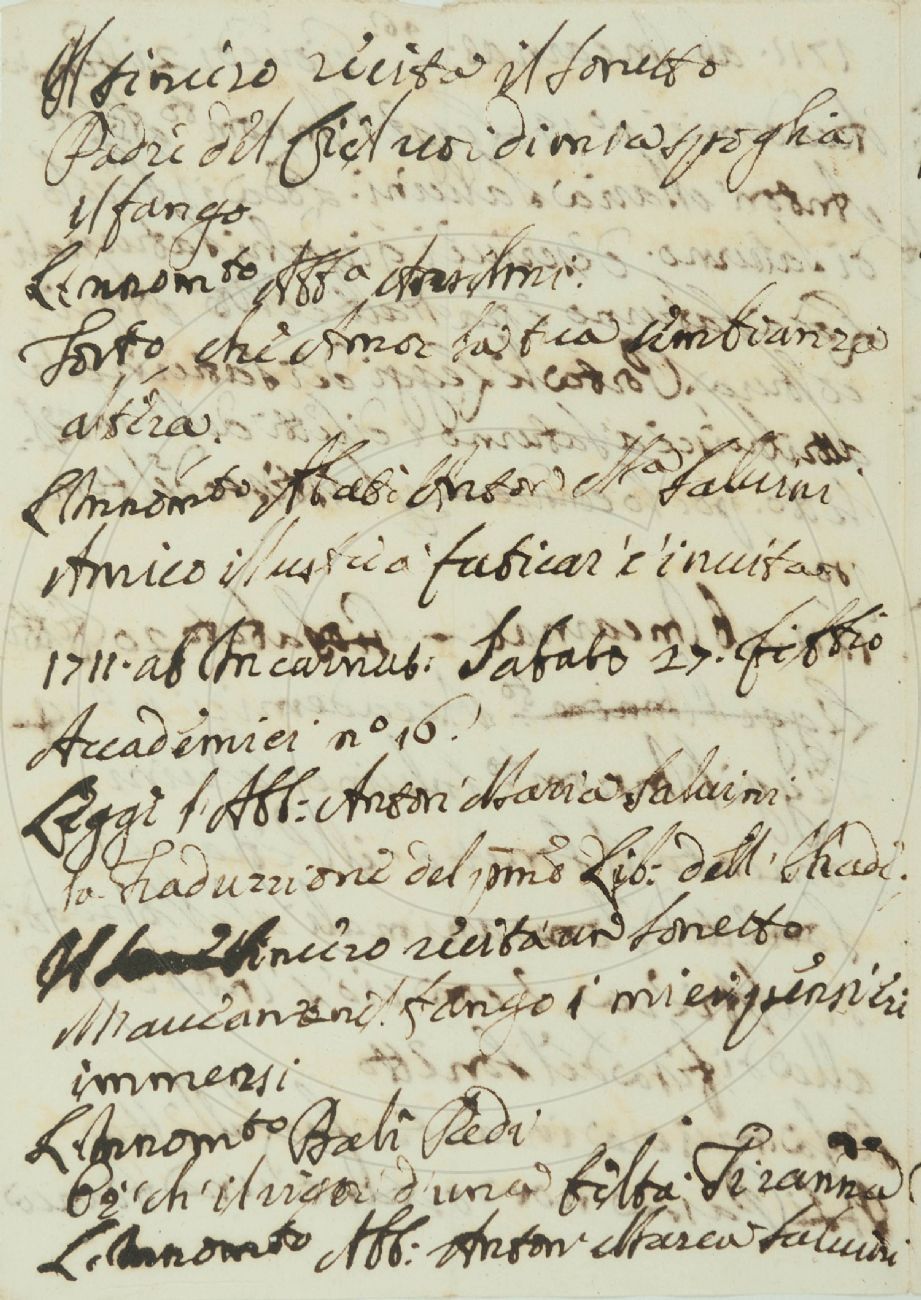 Il sincero recita il sonetto
Padre del Ciel voi di mia spoglia
il fango
L'Innom.to Abb.a Anselmi.
Tosto, che Amor la tua sembianza
altera.
L'Innom.to Abate Anton M.a Salvini
Amico illustre a faticar c'invita
1711. ab Incarnat: Sabato 27. Febb.io
Accademici n.o 16.
Legge l'Abb: Anton Maria Salvini
la Traduzzione del p.mo Lib: dell'Iliade.
Il sincero recita un sonetto
M'avean nel fango i miei pensieri
immersi
L'Innom.to Balì Redi
ch' il vigor d'una Tiranna
L'Innom.to Abb: Anton Maria Salvini